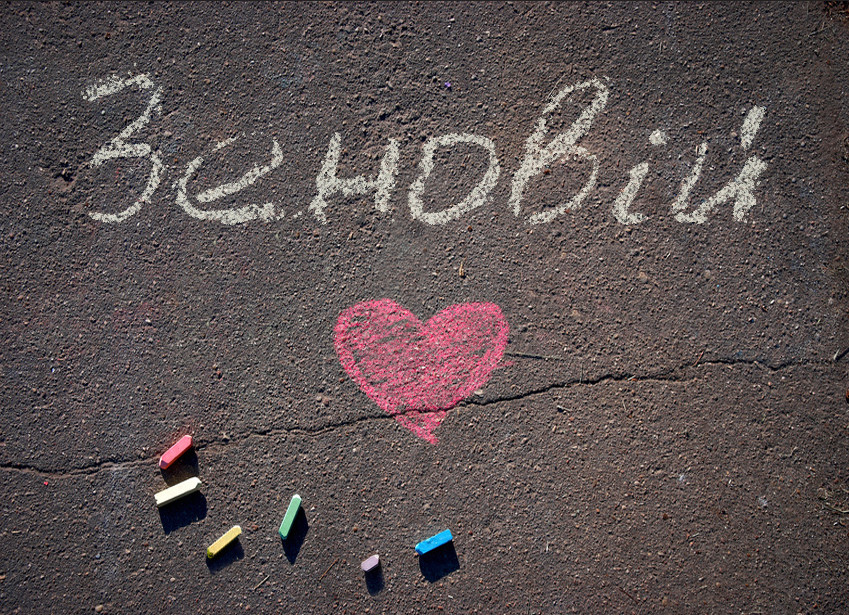 Зеновій